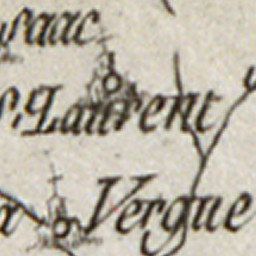 saac
S. Laurent
Vergne